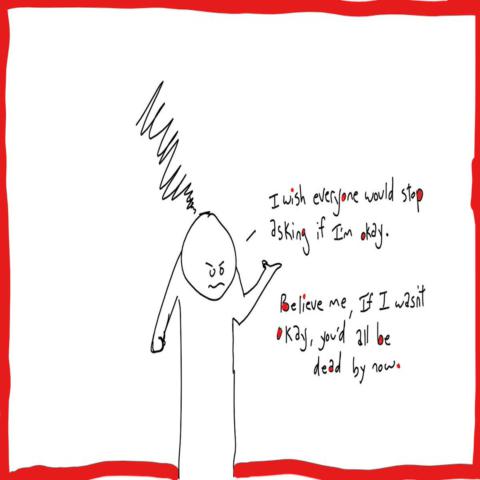 I wish everyone would stop
asking if I'm okay.
Believe me, If I wasn't
okay, you'd all be
dead by now.